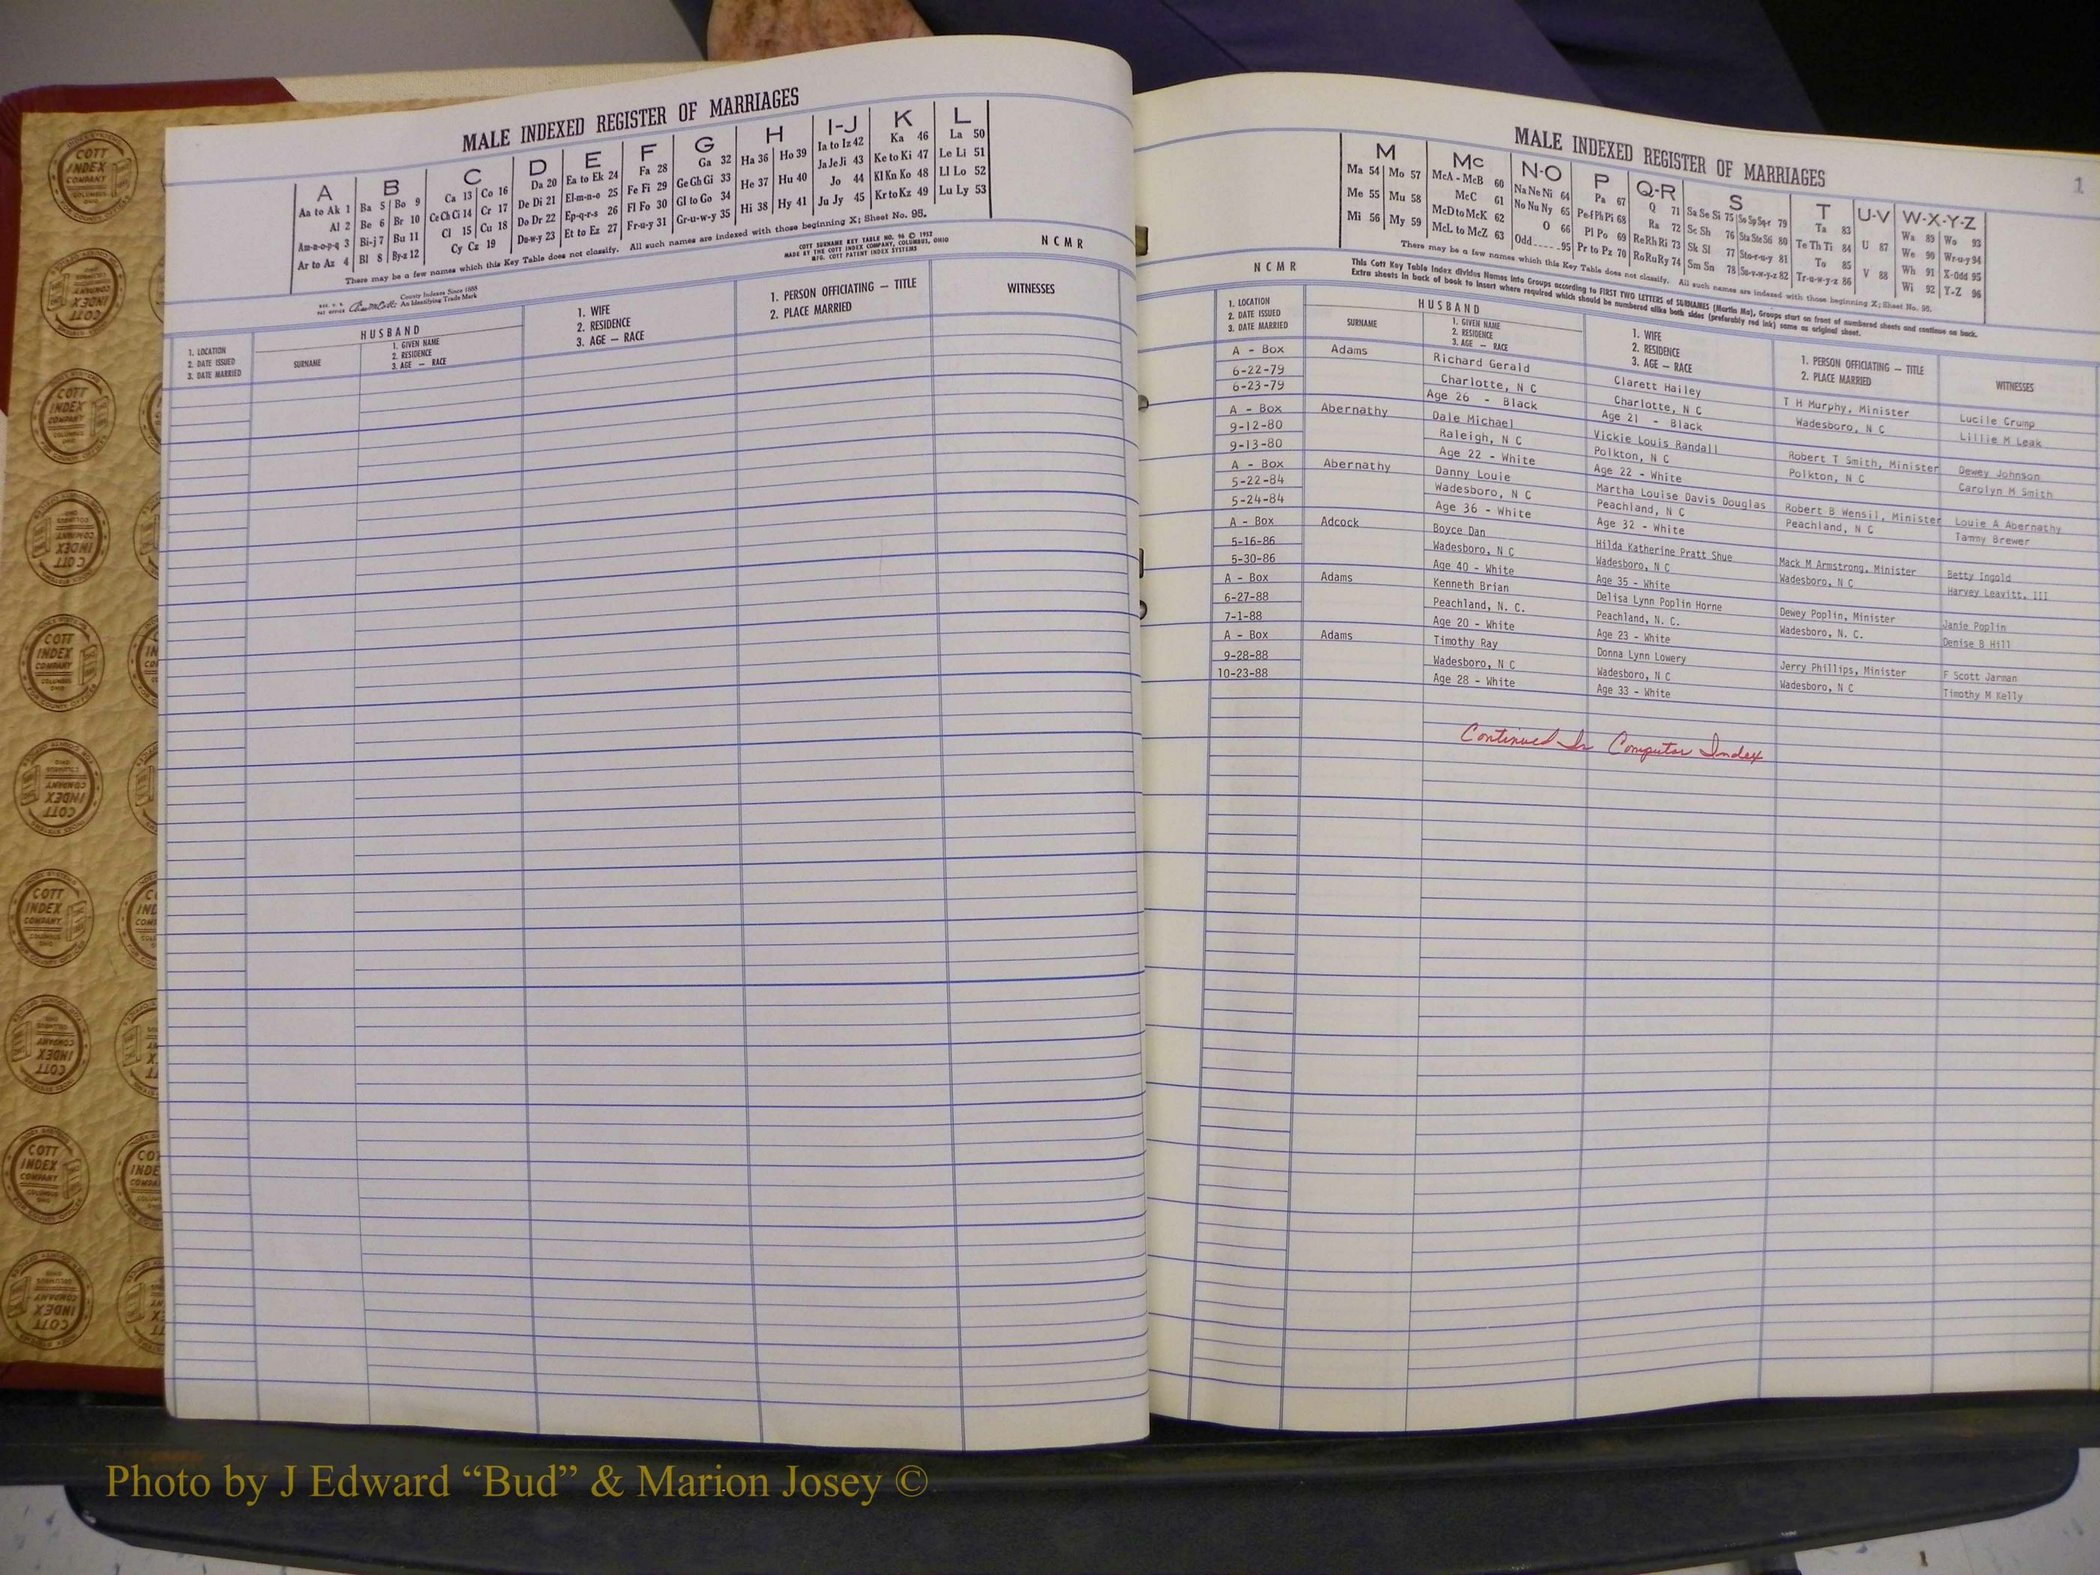 MALE INDEXED REGISTER OF MARRIAGES
A B C D E F G H I-J K L
Aa to Ak 1 Ba 5 Bo 9 Ca 13 Co 16 Da 20 Ea to Ek 24 Fa 28 Ga 32 Ha 36 Ho 39 Ia to Iz 42 Ka 46 La 50
Al 2 Be 6 Br 10 Ce Ch Ci 14 Cr 17 De Di 21 El-m-n-o 25 Fe Fi 29 Ge Gh Gi 33 He 37 Hu 40 Ja Je Ji 43 Ke to Ki 47 Le Li 51
Am-n-o-p-q 3 Bi-j 7 Bu 11 Cl 15 Cu 18 Do Dr 22 Ep-q-r-s 26 Fl Fo 30 Gl to Go 34 Hi 38 Hy 41 Jo 44 Kl Kn Ko 48 Ll Lo 52
Ar to Az 4 Bl 8 By-z 12 Cy Cz 19 Du-w-y 23 Et to Ez 27 Fr-u-y 31 Gr-u-w-y 35 Ju Jy 45 Kr to Kz 49 Lu Ly 53
There may be a few names which this Key Table does not classify. All such names are indexed with those beginning X; Sheet No. 95.
COTT SURNAME KEY TABLE NO. 96 © 1952
MADE BY THE COTT INDEX COMPANY, COLUMBUS, OHIO
MFG. COTT PATENT INDEX SYSTEMS
NCMR
County Indexes Since 1888
An Identifying Trade Mark
1. LOCATION
2. DATE ISSUED
3. DATE MARRIED
HUSBAND
SURNAME
1. GIVEN NAME
2. RESIDENCE
3. AGE — RACE
1. WIFE
2. RESIDENCE
3. AGE — RACE
1. PERSON OFFICIATING — TITLE
2. PLACE MARRIED
WITNESSES
MALE INDEXED REGISTER OF MARRIAGES
1
M Mc N-O P Q-R S T U-V W-X-Y-Z
Ma 54 Mo 57 McA - McB 60 Na Ne Ni 64 Pa 67 Q 71 Sa Se Si 75 So Sp Sq-r 79 Ta 83 U 87 Wa 89 Wo 93
Me 55 Mu 58 McC 61 No Nu Ny 65 Pe-f Ph Pi 68 Ra 72 Sc Sh 76 Sta Ste Sti 80 Te Th Ti 84 V 88 We 90 Wr-u-y 94
Mi 56 My 59 McD to McK 62 O 66 Pl Po 69 Re Rh Ri 73 Sk Sl 77 Sto-r-u-y 81 To 85 Wh 91 X-Odd 95
McL to McZ 63 Odd 95 Pr to Pz 70 Ro Ru Ry 74 Sm Sn 78 Su-v-w-y-z 82 Tr-u-w-y-z 86 Wi 92 Y-Z 96
There may be a few names which this Key Table does not classify. All such names are indexed with those beginning X; Sheet No. 95.
NCMR
This Cott Key Table Index divides Names into Groups according to FIRST TWO LETTERS of SURNAMES (Martin Ma), Groups start on front of numbered sheets and continue on back.
Extra sheets in back of book to insert where required which should be numbered alike both sides (preferably red ink) same as original sheet.
1. LOCATION
2. DATE ISSUED
3. DATE MARRIED
HUSBAND
SURNAME
1. GIVEN NAME
2. RESIDENCE
3. AGE — RACE
1. WIFE
2. RESIDENCE
3. AGE — RACE
1. PERSON OFFICIATING — TITLE
2. PLACE MARRIED
WITNESSES
A - Box Adams Richard Gerald Clarett Hailey T H Murphy, Minister Lucile Crump
6-22-79 Charlotte, N C Charlotte, N C Wadesboro, N C Lillie M Leak
6-23-79 Age 26 - Black Age 21 - Black
A - Box Abernathy Dale Michael Vickie Louis Randall Robert T Smith, Minister Dewey Johnson
9-12-80 Raleigh, N C Polkton, N C Polkton, N C Carolyn M Smith
9-13-80 Age 22 - White Age 22 - White
A - Box Abernathy Danny Louie Martha Louise Davis Douglas Robert B Wensil, Minister Louie A Abernathy
5-22-84 Wadesboro, N C Peachland, N C Peachland, N C Tammy Brewer
5-24-84 Age 36 - White Age 32 - White
A - Box Adcock Boyce Dan Hilda Katherine Pratt Shue Mack M Armstrong, Minister Betty Ingold
5-16-86 Wadesboro, N C Wadesboro, N C Wadesboro, N C Harvey Leavitt, III
5-30-86 Age 40 - White Age 35 - White
A - Box Adams Kenneth Brian Delisa Lynn Poplin Horne Dewey Poplin, Minister Janie Poplin
6-27-88 Peachland, N. C. Peachland, N. C. Wadesboro, N. C. Denise B Hill
7-1-88 Age 20 - White Age 23 - White
A - Box Adams Timothy Ray Donna Lynn Lowery Jerry Phillips, Minister F Scott Jarman
9-28-88 Wadesboro, N C Wadesboro, N C Wadesboro, N C Timothy M Kelly
10-23-88 Age 28 - White Age 33 - White
Continued In Computer Index
COTT INDEX COMPANY COLUMBUS OHIO
Photo by J Edward “Bud” & Marion Josey ©